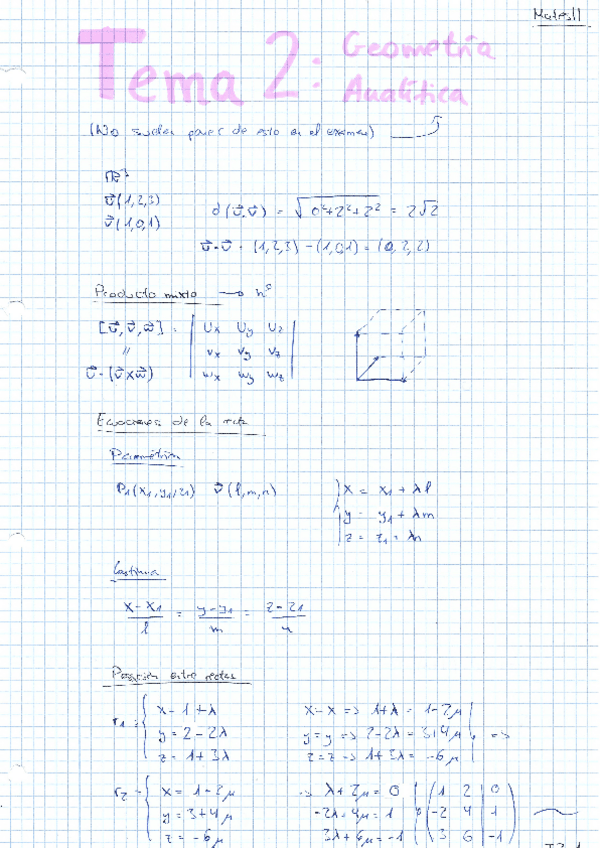 Mates II
Tema 2: Geometría
Analítica
(No suelen poner de esto en el examen)
ℝ³
u⃗(1,2,3)
v⃗(1,0,1)
d(u⃗,v⃗) = √(0²+2²+2²) = 2√2
u⃗-v⃗ = (1,2,3) - (1,0,1) = (0,2,2)
Producto mixto → nº
[u⃗,v⃗,w⃗] = | Ux Uy Uz |
| vx vy vz |
| wx wy wz |
"
u⃗·(v⃗xw⃗)
Ecuaciones de la recta
Paramétrica
P1(x1,y1,z1) v⃗(l,m,n)
x = x1 + λl
y = y1 + λm
z = z1 = λn
Continua
x-x1/l = y-y1/m = z-z1/n
Posición entre rectas
r1 = { x = 1+λ
y = 2-2λ
z = 1+3λ
x-x => 1+λ = 1-2μ
y=y => 2-2λ = 3+4μ =>
z=z => 1+3λ = -6μ
r2 = { x = 1-2μ
y = 3+4μ
z = -6μ
=> λ+2μ = 0
-2λ-4μ = 1
3λ+6μ = -1
( 1 2 | 0 )
( -2 4 | 1 )
( 3 6 | -1 )